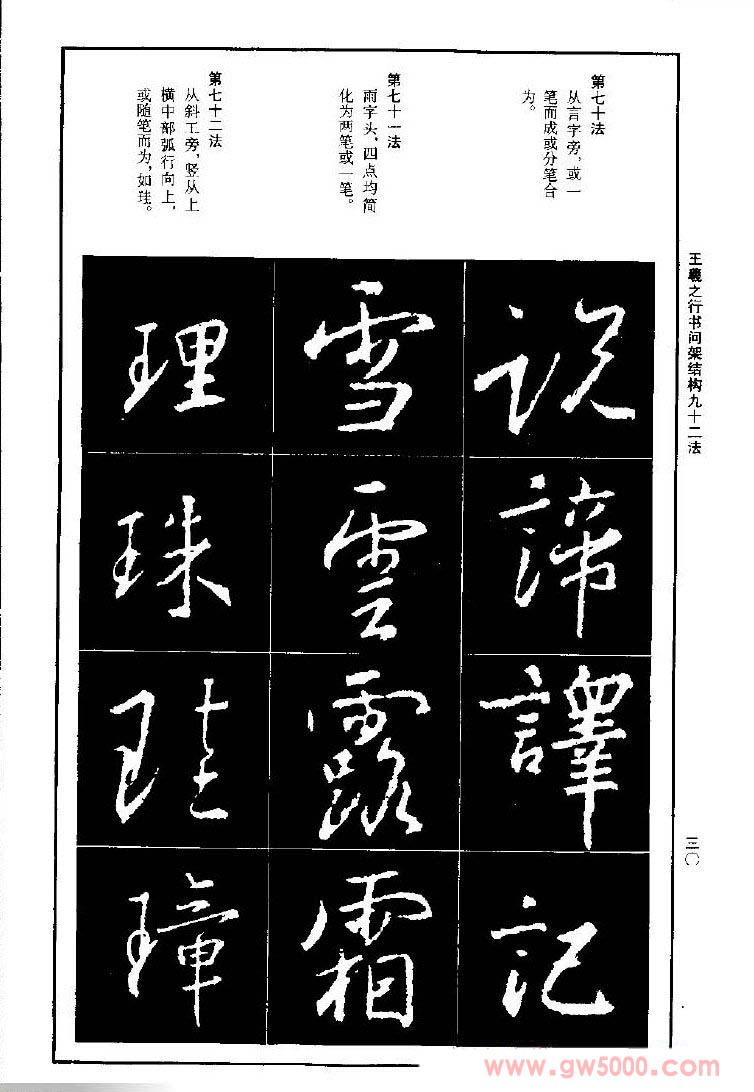 第七十法
从言字旁，或一
笔而成或分笔合
为。
第七十一法
雨字头、四点均简
化为两笔或一笔。
第七十二法
从斜工旁，竖从上
横中部弧行向上，
或随笔而为，如珪。
説
諦
譯
記
雪
雲
露
霜
理
珠
珪
璋
王羲之行书间架结构九十二法
三〇
www.gw5000.com